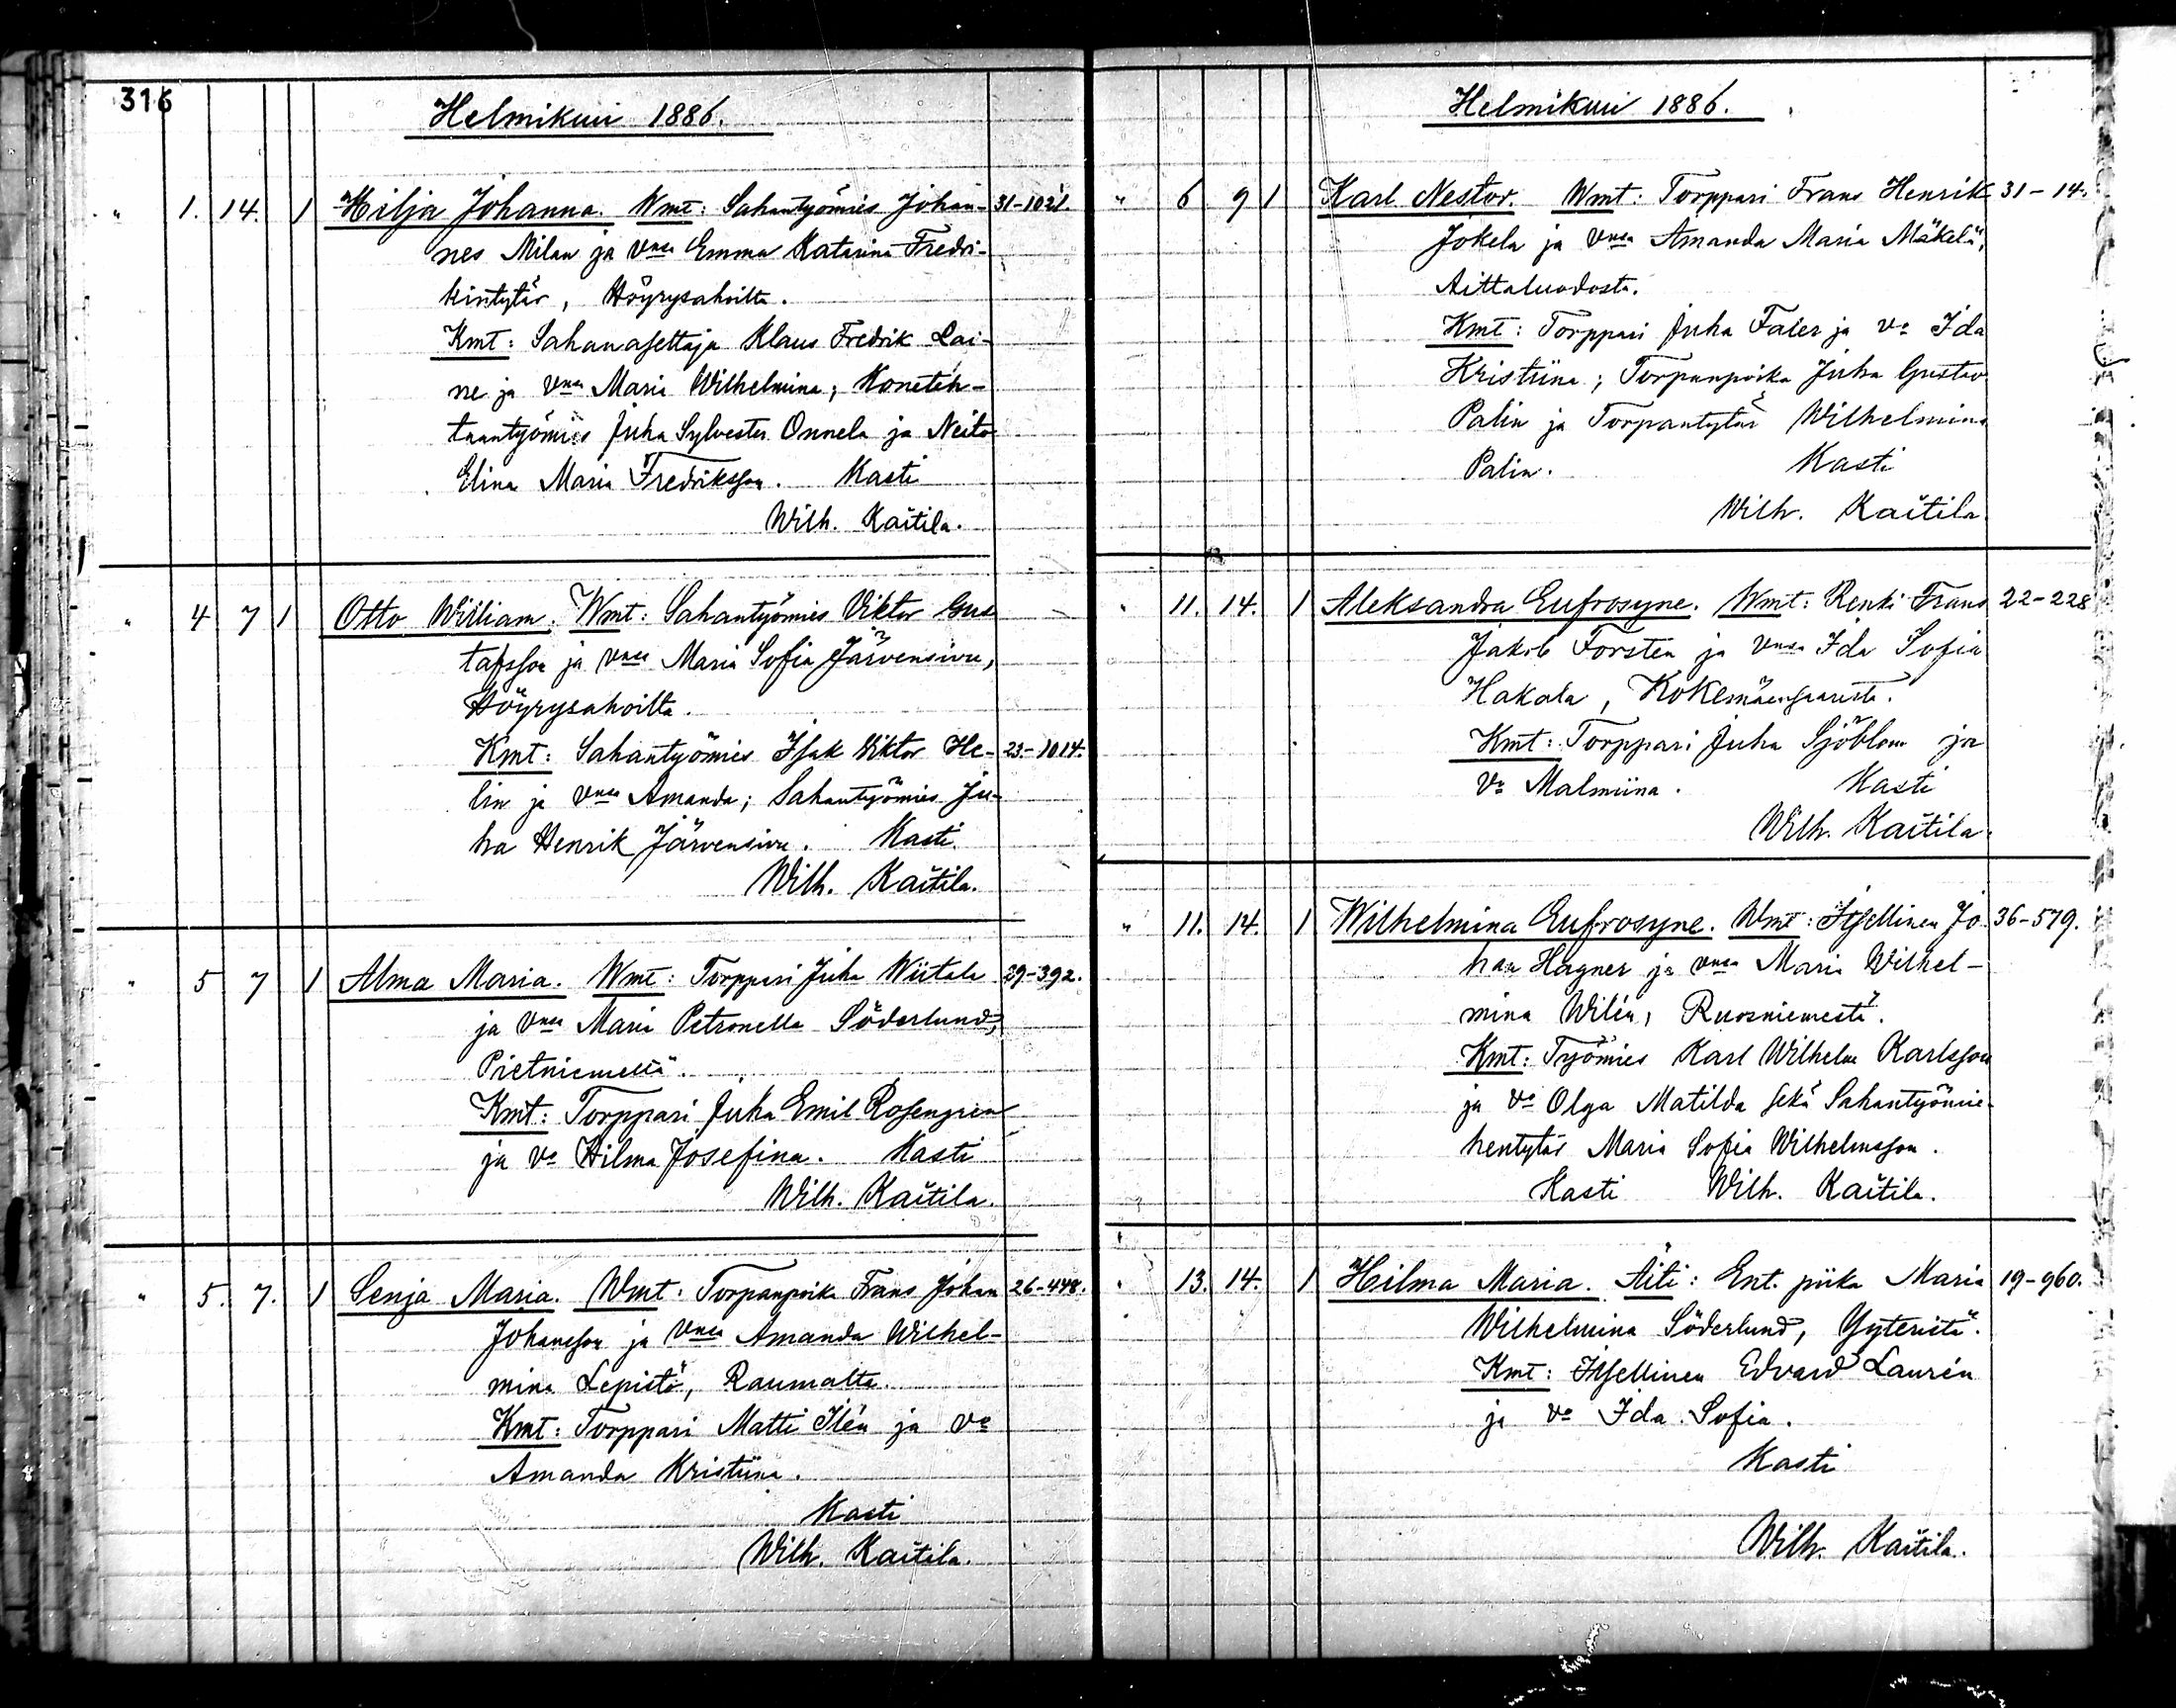 316
Helmikuu 1886.
" 1. 14. 1 Hilja Johanna. Wmt: Sahantyömies Johan- 31-1021.
nes Milan ja vmsa Emma Katarina Fredri-
kintytär, Höyrysahoilta.
Kmt: Sahanasettaja Klaus Fredrik Lai-
ne ja vmsa Maria Wilhelmina; Koneteh-
taantyömies Juha Sylvester Onnela ja Neito
Elina Maria Fredriksson. Kasti
Wilh. Kaitila.
" 4 7 1 Otto William. Wmt: Sahantyömies Viktor Gus-
tafsson ja vmsa Maria Sofia Järvensivu,
Höyrysahoilta.
Kmt: Sahantyömies Isak Viktor He- 23-1014.
lin ja vmsa Amanda; Sahantyömies Ju-
ha Henrik Järvensivu. Kasti
Wilh. Kaitila.
" 5 7 1 Alma Maria. Wmt: Torppari Juha Wiitala 29-392.
ja vmsa Maria Petronella Söderlund,
Pietniemeltä.
Kmt: Torppari Juha Emil Rosengren
ja vo Hilma Josefina. Kasti
Wilh. Kaitila.
" 5. 7. 1 Senja Maria. Wmt. Torpanpoika Frans Johan 26-448.
Johansson ja vmsa Amanda Wilhel-
mina Lepistö, Raumalta.
Kmt: Torppari Matti Ilén ja vo
Amanda Kristiina.
Kasti
Wilh. Kaitila.
Helmikuu 1886.
" 6 9 1 Karl Nestor. Wmt: Torppari Frans Henrik 31-14.
Jokela ja vmsa Amanda Maria Mäkelä,
Aittaluodosta.
Kmt: Torppari Juha Faler ja vo Ida
Kristiina; Torpanpoika Juha Gustav
Palin ja Torpantytär Wilhelmina
Palin. Kasti
Wilh. Kaitila.
" 11. 14. 1 Aleksandra Eufrosyne. Wmt: Renki Frans 22-228
Jakob Forsten ja vmsa Ida Sofia
Hakala, Kokemäensaaresta.
Kmt: Torppari Juha Sjöblom ja
vo Malmiina. Kasti
Wilh. Kaitila.
" 11. 14. 1 Wilhelmina Eufrosyne. Wmt: Itsellinen Jo- 36-579.
han Hagner ja vmsa Maria Wilhel-
mina Wilén, Ruosniemestä.
Kmt: Työmies Karl Wilhelm Karlsson
ja vo Olga Matilda sekä Sahantyömie-
hentytär Maria Sofia Wilhelmsson.
Kasti Wilh. Kaitila.
" 13. 14. 1 Hilma Maria. Äiti: Ent. piika Maria 19-960.
Wilhelmina Söderlund, Yyteristä.
Kmt: Itsellinen Edvard Laurén
ja vo Ida Sofia.
Kasti
Wilh. Kaitila.